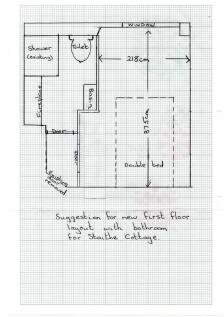 WINDOW
Shower
(existing)
Toilet
218cm
Fireplace
Basin
375cm
Door
Door
Double bed
Existing
removed
Suggestion for new first floor
layout with bathroom
for Staithe Cottage.